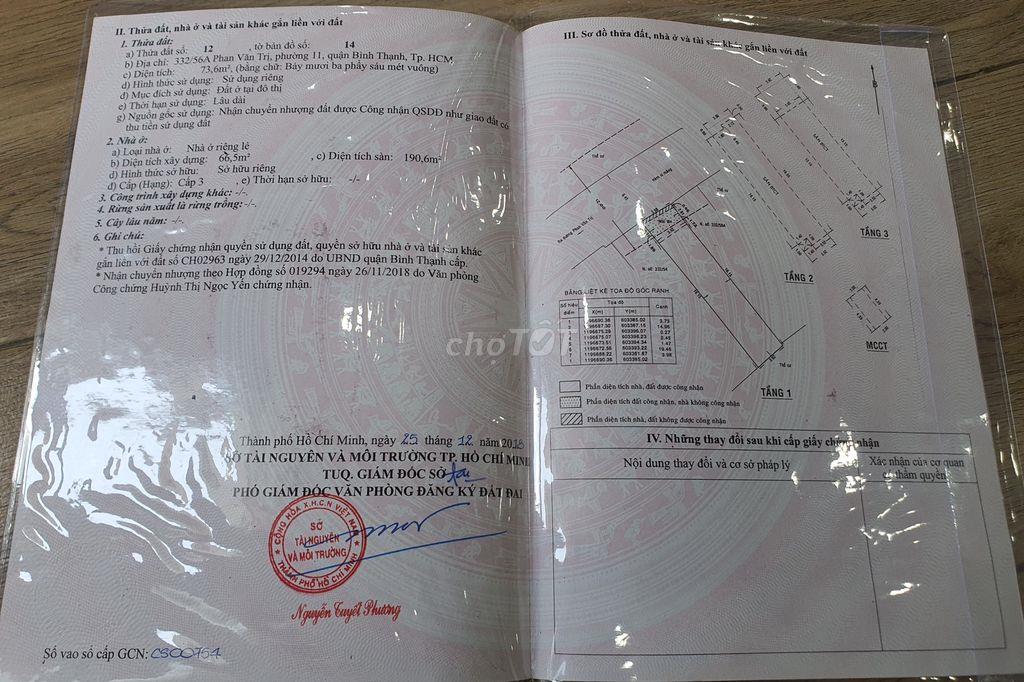 II. Thửa đất, nhà ở và tài sản khác gắn liền với đất
1. Thửa đất:
a) Thửa đất số: 12 , tờ bản đồ số: 14
b) Địa chỉ: 332/56A Phan Văn Trị, phường 11, quận Bình Thạnh, Tp. HCM
c) Diện tích: 73,6m², (bằng chữ: Bảy mươi ba phẩy sáu mét vuông)
d) Hình thức sử dụng: Sử dụng riêng
đ) Mục đích sử dụng: Đất ở tại đô thị
e) Thời hạn sử dụng: Lâu dài
g) Nguồn gốc sử dụng: Nhận chuyển nhượng đất được Công nhận QSDĐ như giao đất có
thu tiền sử dụng đất
2. Nhà ở:
a) Loại nhà ở: Nhà ở riêng lẻ
b) Diện tích xây dựng: 66,5m² , c) Diện tích sàn: 190,6m²
d) Hình thức sở hữu: Sở hữu riêng
đ) Cấp (Hạng): Cấp 3 , e) Thời hạn sở hữu: -/-
3. Công trình xây dựng khác: -/-.
4. Rừng sản xuất là rừng trồng: -/-.
5. Cây lâu năm: -/-.
6. Ghi chú:
* Thu hồi Giấy chứng nhận quyền sử dụng đất, quyền sở hữu nhà ở và tài sản khác
gắn liền với đất số CH02963 ngày 29/12/2014 do UBND quận Bình Thạnh cấp.
* Nhận chuyển nhượng theo Hợp đồng số 019294 ngày 26/11/2018 do Văn phòng
Công chứng Huỳnh Thị Ngọc Yến chứng nhận.
Thành phố Hồ Chí Minh, ngày 25 tháng 12 năm 2018
SỞ TÀI NGUYÊN VÀ MÔI TRƯỜNG TP. HỒ CHÍ MINH
TUQ. GIÁM ĐỐC SỞ
PHÓ GIÁM ĐỐC VĂN PHÒNG ĐĂNG KÝ ĐẤT ĐAI
CỘNG HÒA X.H.C.N VIỆT NAM
SỞ
TÀI NGUYÊN
VÀ MÔI TRƯỜNG
THÀNH PHỐ HỒ CHÍ MINH
Nguyễn Tuyết Phương
Số vào sổ cấp GCN: CS00764
III. Sơ đồ thửa đất, nhà ở và tài sản khác gắn liền với đất
B
TẦNG 3
TẦNG 2
MCCT
TẦNG 1
Thổ cư
Thổ cư
Thổ cư
N. số: 332/54
BẢNG LIỆT KÊ TỌA ĐỘ GÓC RANH
Số hiệu điểm Tọa độ Cạnh
X(m) Y(m)
1 1196690.36 603365.02 3.73
2 1196687.30 603367.15 14.96
3 1196675.29 603396.07 0.27
4 1196675.07 603396.23 2.45
5 1196673.51 603394.34 1.47
6 1196672.56 603393.22 19.46
7 1196688.22 603361.87 3.98
1 1196690.36 603365.02
Phần diện tích nhà, đất được công nhận
Phần diện tích đất công nhận, nhà không công nhận
Phần diện tích nhà, đất không được công nhận
IV. Những thay đổi sau khi cấp giấy chứng nhận
Nội dung thay đổi và cơ sở pháp lý
Xác nhận của cơ quan
có thẩm quyền
chợTỐT